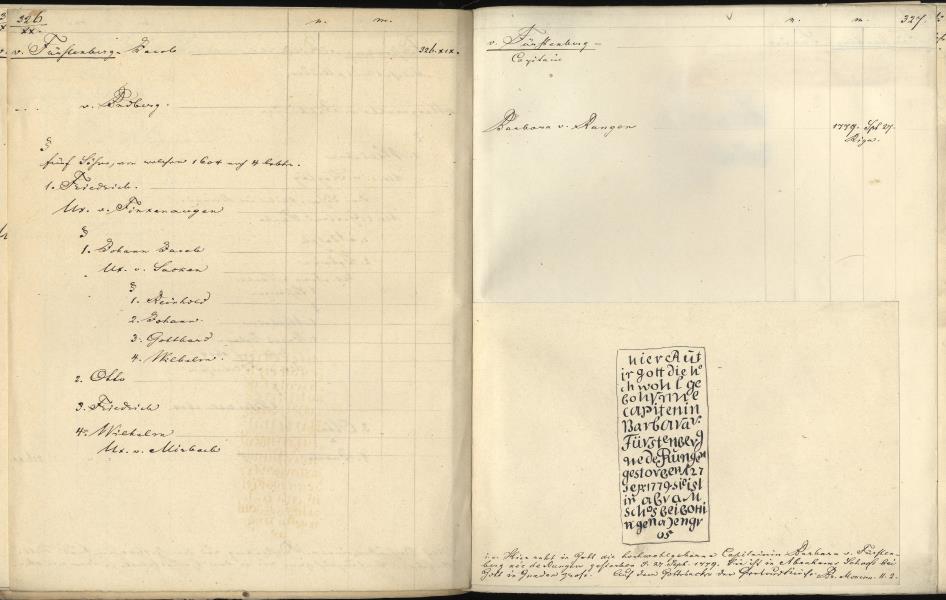 326
XX.
n. m.
v. Fürstenberg Jacob 326. XIX.
v. Brdberg.
§
fünf Söhne, von welchen 1604 noch 4 lebten.
1. Friedrich.
Ux. v. Finkenaugen
§
1. Johann Jacob
Ux. v. Sacken
§
1. Reinhold
2. Johann.
3. Gotthard
4. Wilhelm.
2. Otto
3. Friedrich
4. Wilhelm
Ux. v. Mirbach
n. m. 327.
v. Fürstenberg
Capitain
Barbara v. Rungen 1779. Spt 27.
Riga.
hier Rut
ir gott die h
ch wohl ge
bohrne
capitenin
Barbara v.
Fürstenberg
ne de Rungen
gestorben d 27
Sep 1779 sie ist
in abraM
schos bei Gott i
n genaden gr
os
i. e. Hier ruht in Gott die hochwohlgeborne Capitainin Barbara v. Fürsten-
berg née de Rungen gestorben d. 27 Sept. 1779. Sie ist in Abrahams Schoos bei
Gott in Gnaden gross. Auf dem Gottesacker der